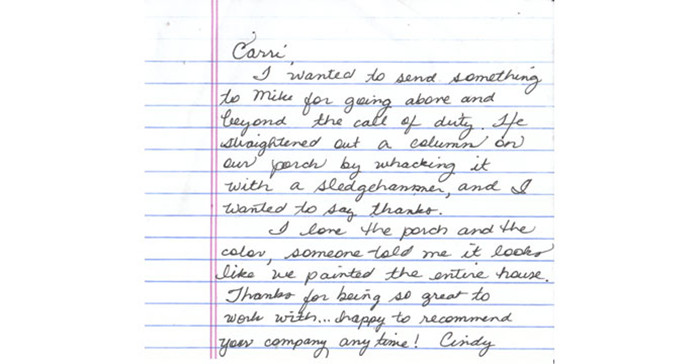 Carri,
I wanted to send something
to Mike for going above and
beyond the call of duty. He
straightened out a column on
our porch by whacking it
with a sledgehammer, and I
wanted to say thanks.
I love the porch and the
color, someone told me it looks
like we painted the entire house.
Thanks for being so great to
work with... happy to recommend
your company anytime! Cindy